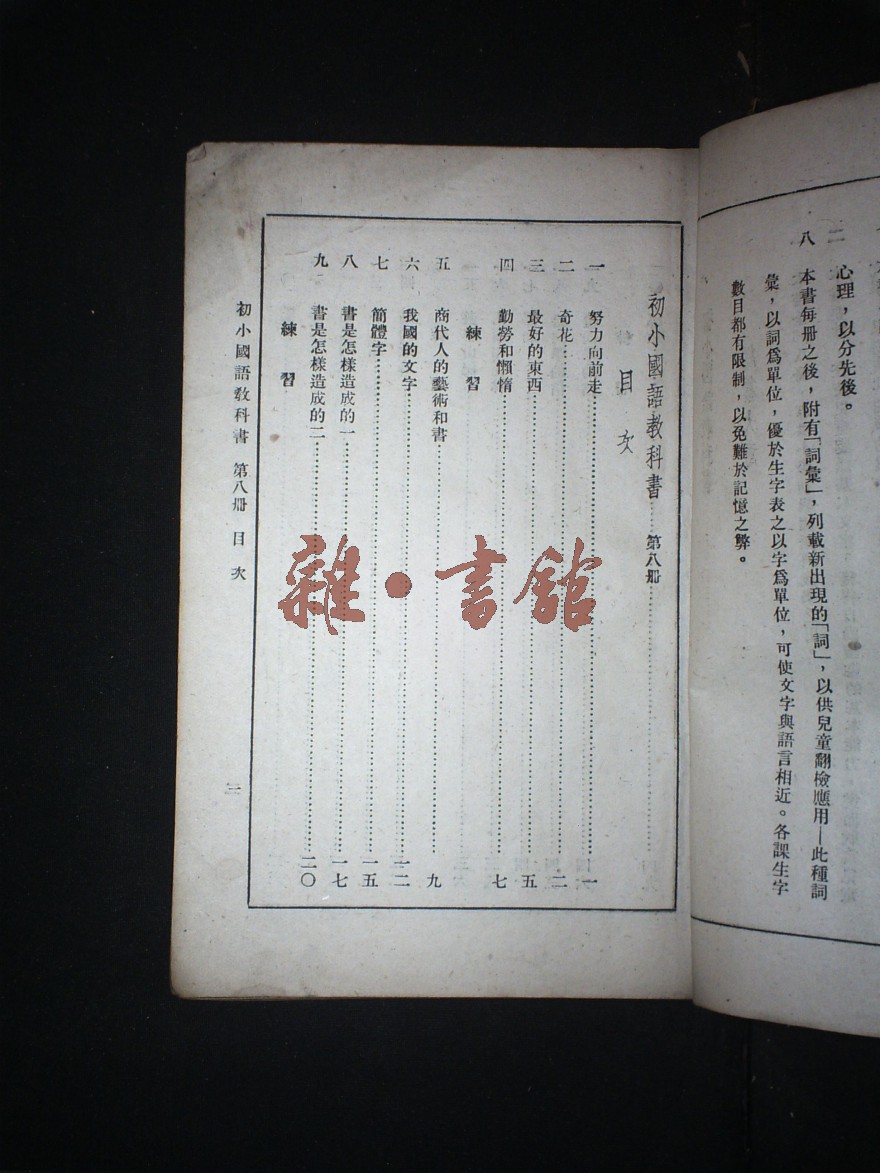 心理，以分先後。
八　本書每册之後，附有「詞彙」，列載新出現的「詞」，以供兒童翻檢應用—此種詞
彙，以詞爲單位，優於生字表之以字爲單位，可使文字與語言相近。各課生字
數目都有限制，以免難於記憶之弊。
初小國語教科書　第八册
目次
一　努力向前走……一
二　奇花……二
三　最好的東西……五
四　勤勞和懶惰……七
練習
五　商代人的藝術和書……九
六　我國的文字……一二
七　簡體字……一五
八　書是怎樣造成的一……一七
九　書是怎樣造成的二……二〇
練習
初小國語教科書　第八册　目次
一
雜·書館